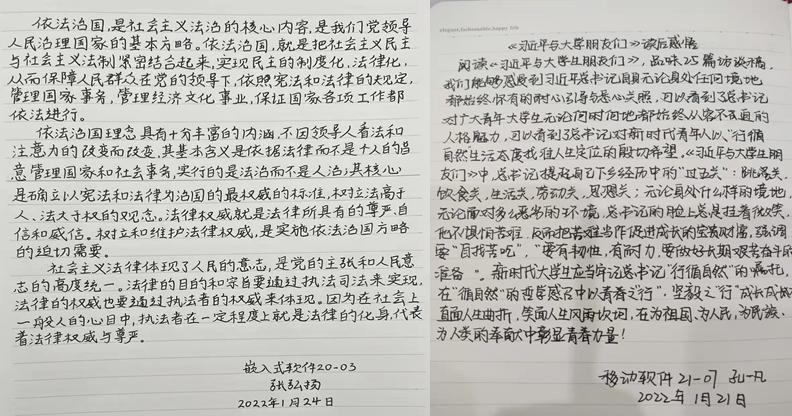 依法治国,是社会主义法治的核心内容,是我们党领导
人民治理国家的基本方略。依法治国,就是把社会主义民主
与社会主义法制紧密结合起来,实现民主的制度化,法律化,
从而保障人民群众在党的领导下,依照宪法和法律的规定,
管理国家事务,管理经济文化事业,保证国家各项工作都
依法进行。
依法治国理念具有十分丰富的内涵,不因领导人看法和
注意力的改变而改变,其基本含义是依据法律而不是个人的旨
意管理国家和社会事务,实行的是法治而不是人治;其核心
是确立以宪法和法律为治国的最权威的标准,树立法高于
人、法大于权的观念。法律权威就是法律所具有的尊严,自
信和威信。树立和维护法律权威,是实施依法治国方略
的迫切需要。
社会主义法律体现了人民的意志,是党的主张和人民意
志的高度统一。法律的目的和宗旨要通过执法司法来实现,
法律的权威也要通过执法者的权威来体现。因为在社会上
一般人的心目中,执法者在一定程度上就是法律的化身,代表
着法律权威与尊严。
嵌入式软件20-03
张弘扬
2022年1月24日
elegant,fashionable,happy life
《习近平与大学朋友们》读后感悟
阅读《习近平与大学生朋友们》,品味25篇访谈稿,
我们能够感受到习近平总书记同具无论身处任何境地
都始终怀有的耐心引导与悉心关照,可以看到了总书记
对广大青年大学生无论何时何地都始终从容不迫的
人格魅力,可以看到了总书记对新时代青年人以"行循
自然"生活态度找准人生定位的殷切希望。《习近平与大学生朋
友们》中,总书记提起自己下乡经历中的"过五关":跳蚤关,
饮食关,生活关,劳动关,思想关;无论身处什么样的境地,
无论面对多么恶劣的环境,总书记的脸上总是挂着微笑,
他不惧怕苦难,反而把苦难当作促进成长的宝贵财富,强调
要"自找苦吃","要有韧性,有耐力,要做好长期艰苦奋斗的
准备"。新时代大学生应当牢记总书记"行循自然"的嘱托,
在"循自然"的哲学感召中以"青春之行",坚毅之行"成长成材
直面人生曲折,笑面人生风雨坎坷,在为祖国、为人民、为民族、
为人类的奉献中彰显青春力量!
移动软件21-07 孔一凡
2022年1月21日